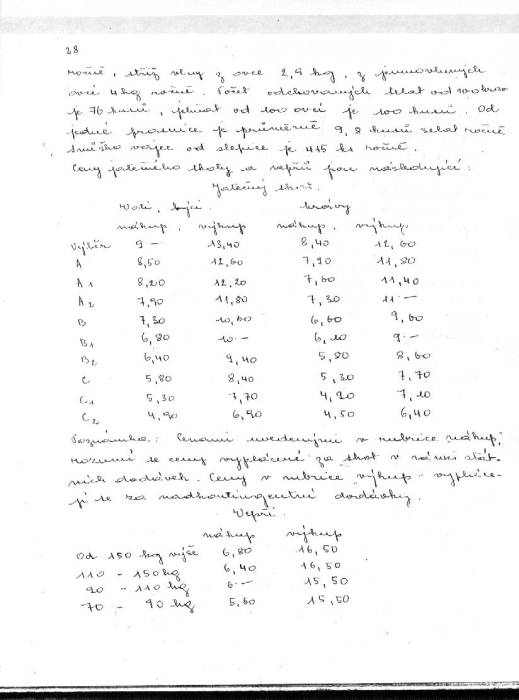 28
ročně, stříž vlny z ovce 2,9 kg, z jemnovlnných
ovcí 4 kg ročně. Počet odchovaných telat od 100 krav
je 76 kusů, jehňat od 100 ovcí je 100 kusů. Od
jedné prasnice je průměrně 9,8 kusů selat ročně
Snůška vajec od slepice je 415 ks ročně.
Ceny jatečného skotu a vepřů jsou následující:
Jatečný skot.
Voli, býci. krávy
nákup, výkup nákup, výkup
Výběr 9 – 13,40 8,40 12,60
A 8,50 12,60 7,90 11,80
A1 8,20 12,20 7,60 11,40
A2 7,90 11,80 7,30 11.–
B 7,30 10,60 6,60 9,60
B1 6,80 10.– 6,10 9.–
B2 6,40 9,40 5,80 8,60
C 5,80 8,40 5,30 7,70
C1 5,30 7,70 4,90 7,10
C2 4,90 6,90 4,50 6,40
Poznámka: Cenami uvedenými v rubrice nákup,
rozumí se ceny vyplácené za skot v rámci stát-
ních dodávek. Ceny v rubrice výkup – vypláce-
jí se za nadkontingentní dodávky.
Vepři.
nákup výkup
Od 150 kg výše 6,80 16,50
110 – 150 kg 6,40 16,50
90 – 110 kg 6.– 15,50
70 – 90 kg 5,60 15,50